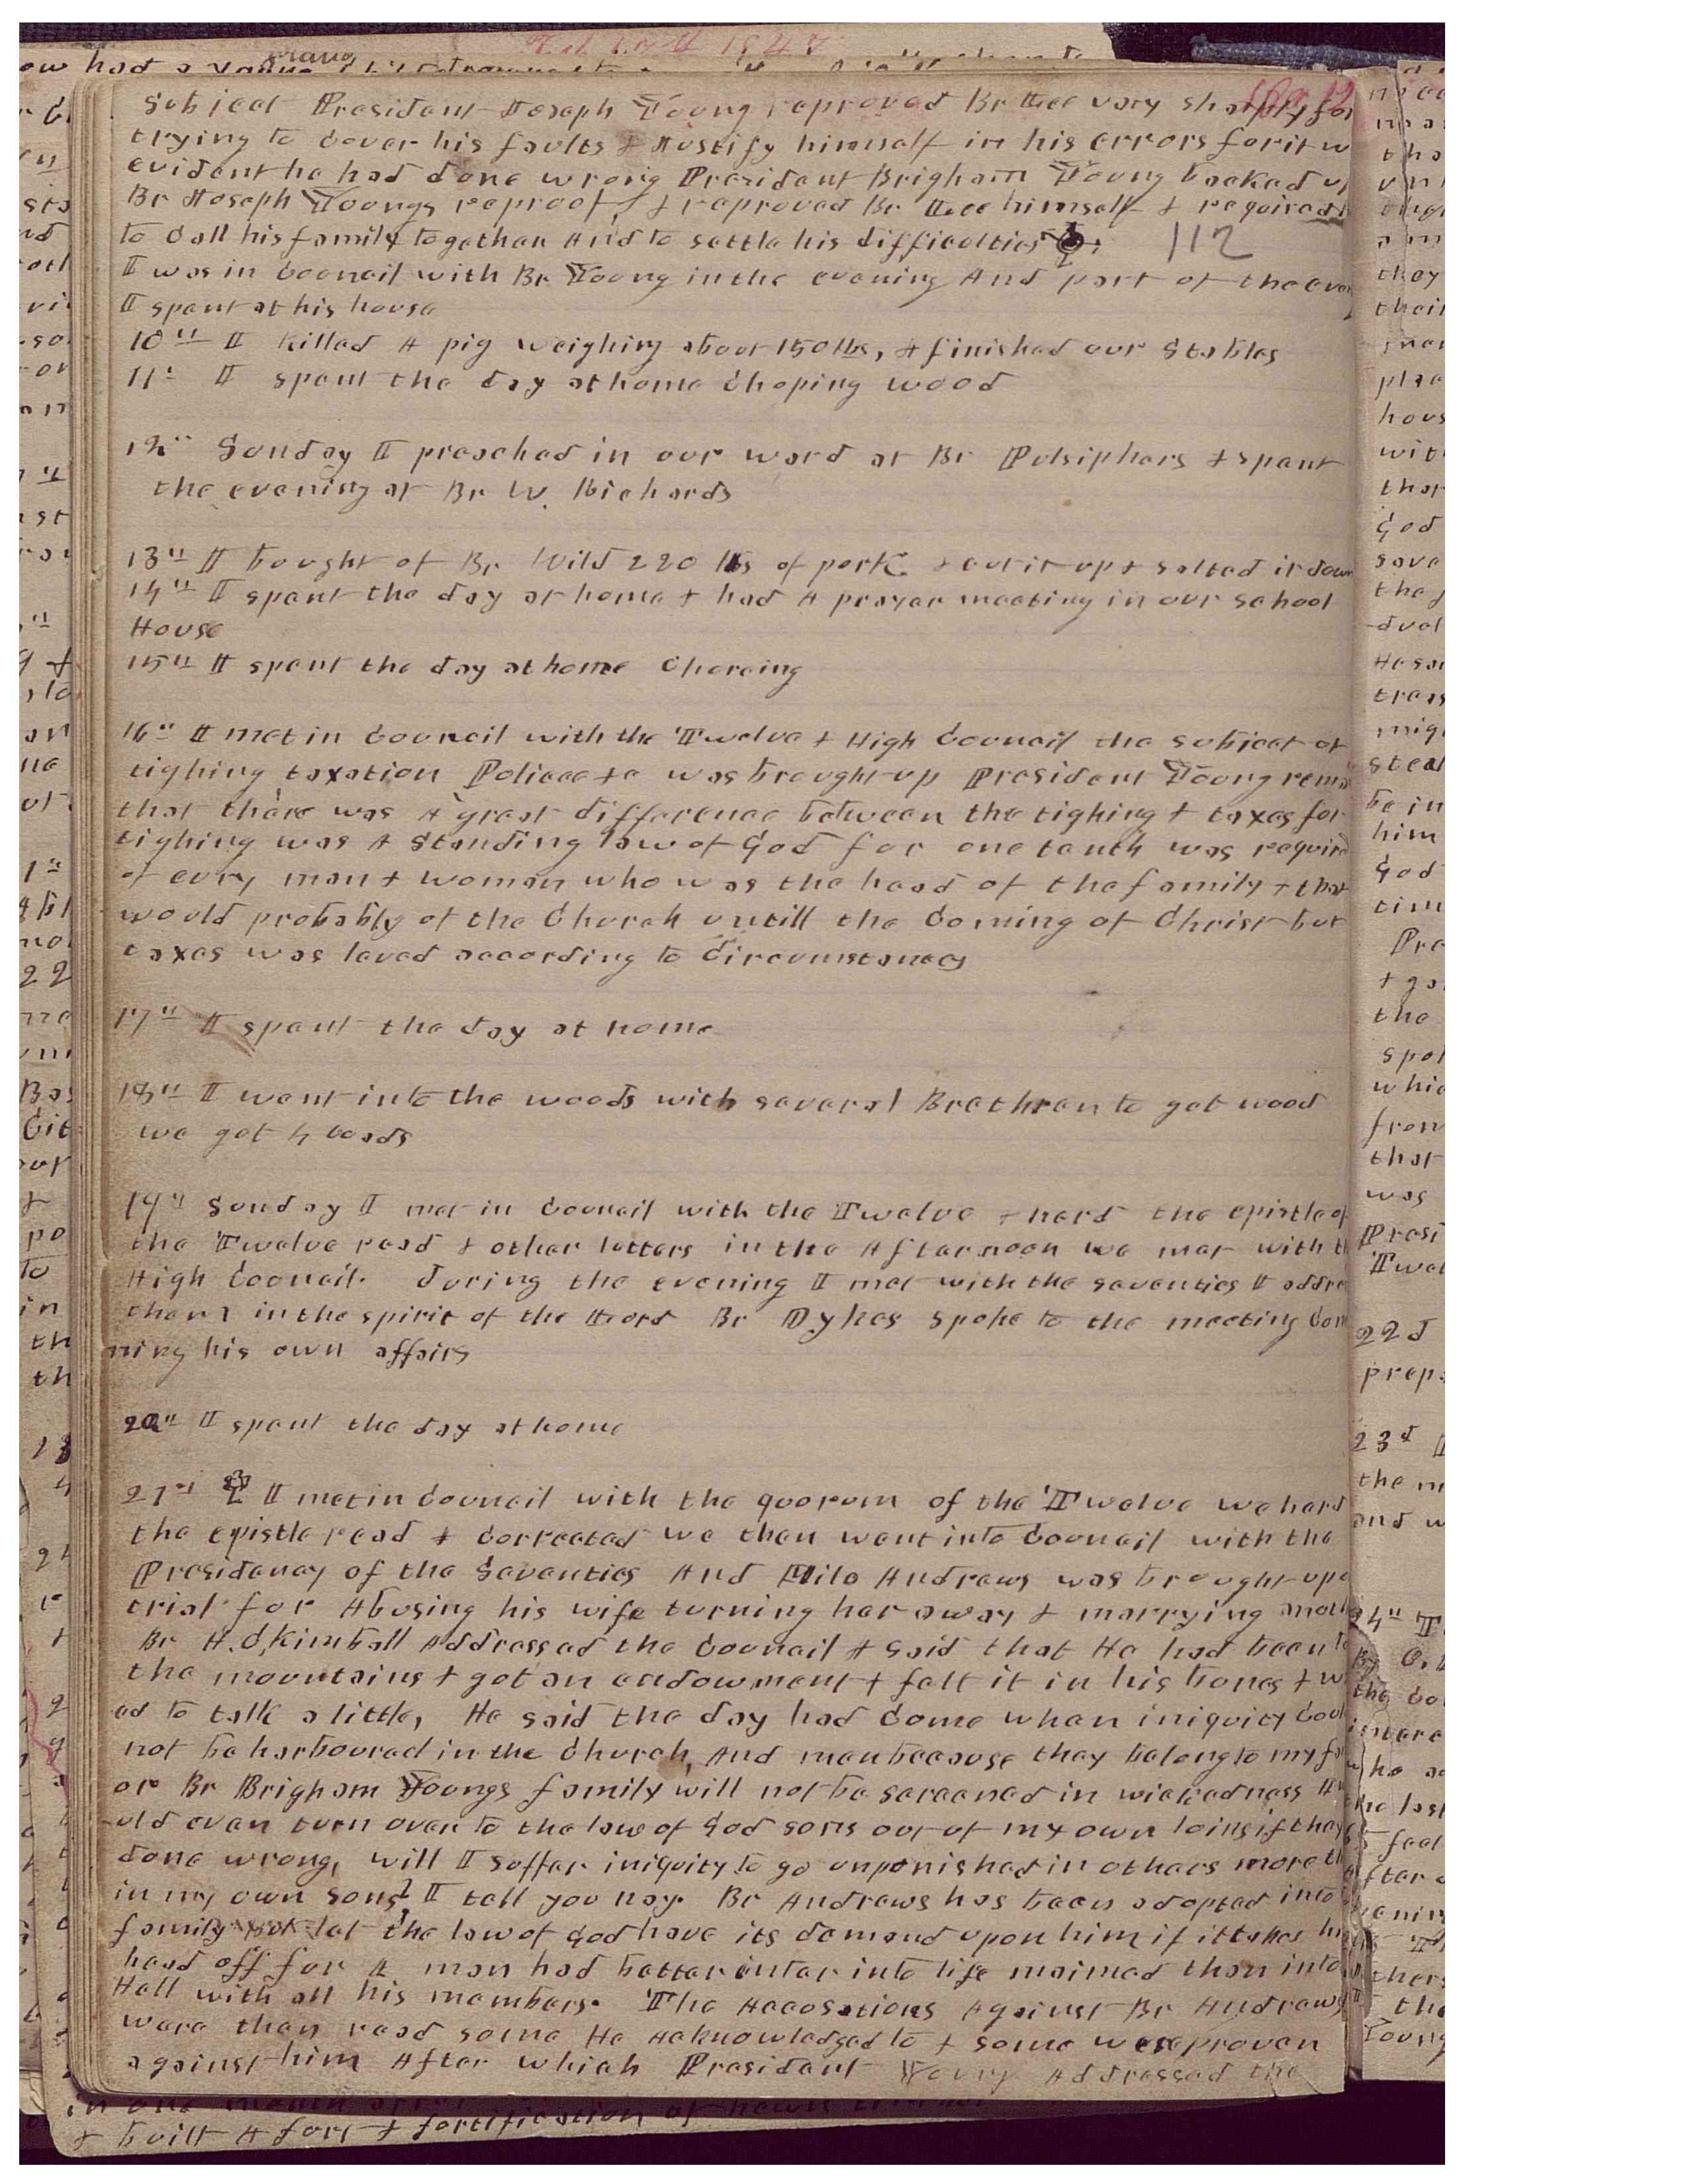 subject President Joseph Young reproved Br Lee vary sharply for
trying to cover his faults & Justify himself in his errors for it w
evident he had done wrong President Brigham Young backed up
Br Joseph Youngs reproof, & reproved Br Lee himself & required
to call his family togethar And to settle his difficulties 112
I was in council with Br Young in the evening And part of the eve
I spent at his house
10th I killed A pig weighing about 150 lbs, & finished our Stables
11th I spent the day at home choping wood
12th Sunday I preached in our ward at Br Pulsiphers & spent
the evening at Br W. Richards
13th I bought of Br Wild 220 lbs of pork & cut it up & salted it down
14th I spent the day at home & had A prayer meeting in our school
House
15th I spent the day at home choreing
16th I met in council with the Twelve & High Council the subject of
tighing taxation Police &c was brought up President Young rema
that there was A great difference between the tighing & taxes for
tighing was A standing law of God for one tenth was requird
of evry man & woman who was the head of the family & that
would probably of the Church untill the coming of Christ but
taxes was leved according to circumstances
17th I spent the day at home
18th I went into the woods with several Brethren to get wood
we got 4 loads
19th Sunday I met in council with the Twelve & herd the epistle of
the Twelve read & other letters in the Afternoon we met with th
High Council. During the evening I met with the seventies I addre
them in the spirit of the Lord Br Dykes spoke to the meeting con
ning his own affairs
20th I spent the day at home
21st I met in council with the quorum of the Twelve we herd
the epistle read & corrected we then went into council with the
Presidency of the Seventies And Milo Andrews was brought upo
trial for Abusing his wife turning her away & marrying anoth
Br H. C, Kimball Addressed the council & said that He had been to
the mountains & got an endowment & felt it in his bones & w
ed to talk a little, He said the day had come when iniquity coul
not be harboured in the Church, And man because they belong to my fa
or Br Brigham Youngs family will not be screened in wickedness I w
uld even turn over to the law of God sons out of my own loins if they
done wrong, will I suffer iniquity to go unpunished in others more th
in my own sons? I tell you nay. Br Andrews has been adopted into
family let the law of God have its demand upon him if it takes hi
head off for A man had better intar into life maimed than into
Hell with all his members. The Accusations Against Br Andraws
were then read some He Acknowledged to & some were proven
against him After which President Young Addressed the